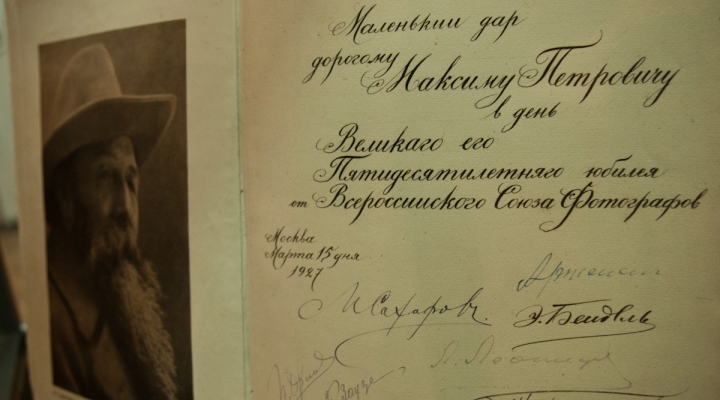 Маленький дар
дорогому
Максиму Петровичу
в день
Великаго его
Пятидесятилетняго юбилея
от Всероссийского Союза Фотографов
Москва
Марта 15 дня
1927
И Сахаров
Э. Бендель